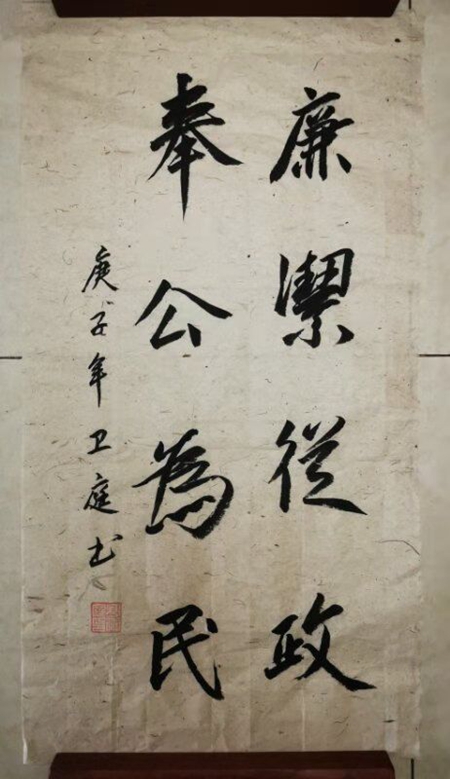 廉潔從政
奉公為民
庚子年卫庭书